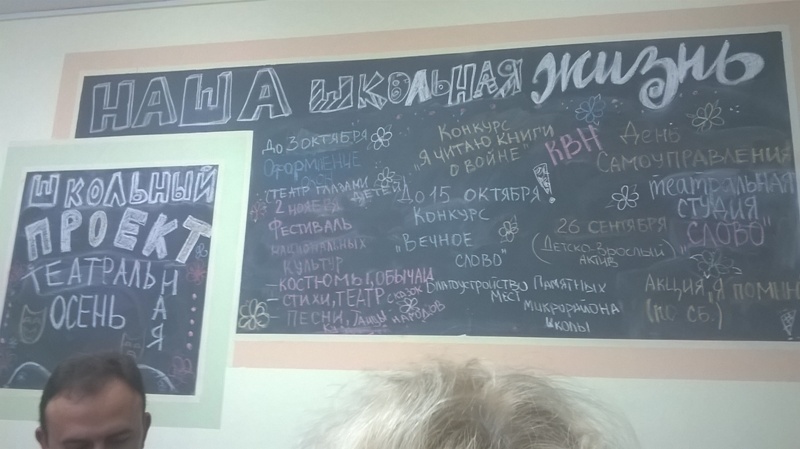 НАША ШКОЛЬНАЯ ЖИЗНЬ
ШКОЛЬНЫЙ
ПРОЕКТ
ТЕАТРАЛЬНАЯ
ОСЕНЬ
ДО 3 ОКТЯБРЯ
ОФОРМЛЕНИЕ
"ТЕАТР ГЛАЗАМИ
ДЕТЕЙ"
2 НОЯБРЯ
ФЕСТИВАЛЬ
НАЦИОНАЛЬНЫХ
КУЛЬТУР
- КОСТЮМЫ, ОБЫЧАИ
- СТИХИ, ТЕАТР
- ПЕСНИ, ТАНЦЫ
НАРОДОВ
КОНКУРС
"Я ЧИТАЮ КНИГИ
О ВОЙНЕ"
ДО 15 ОКТЯБРЯ!
КОНКУРС
"ВЕЧНОЕ
СЛОВО"
БЛАГОУСТРОЙСТВО ПАМЯТНЫХ
МЕСТ МИКРОРАЙОНА
ШКОЛЫ
КВН
26 СЕНТЯБРЯ
(ДЕТСКО-ВЗРОСЛЫЙ)
АКТИВ
ДЕНЬ
САМОУПРАВЛЕНИЯ
ТЕАТРАЛЬНАЯ
СТУДИЯ
"СЛОВО"
АКЦИЯ "Я ПОМНЮ
(ПО СБ.)